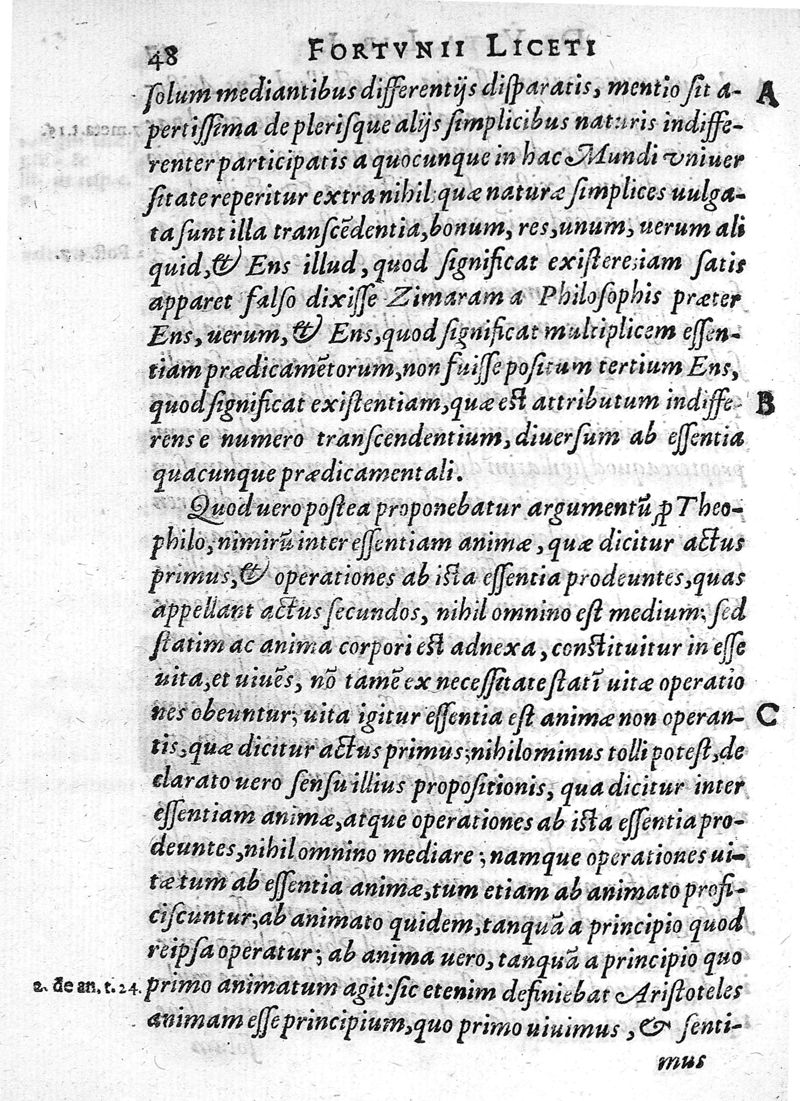 48 FORTVNII LICETI
ſolum mediantibus differentijs diſparatis, mentio fit a- A
pertiſſima de pleriſque alijs ſimplicibus naturis indiffe-
renter participatis a quocunque in hac Mundi vniuer
ſitate reperitur extra nihil: quæ naturæ ſimplices uulga-
ta ſunt illa tranſcēdentia, bonum, res, unum, uerum ali
quid, & Ens illud, quod ſignificat exiſtere: iam ſatis
apparet falſo dixiſſe Zimaram a Philoſophis præter
Ens, uerum, & Ens, quod ſignificat multiplicem eſſen-
tiam prædicamētorum, non fuiſſe poſitum tertium Ens,
quod ſignificat exiſtentiam, quæ eſt attributum indiffe- B
rens e numero tranſcendentium, diuerſum ab eſſentia
quacunque prædicamentali.
Quod uero poſtea proponebatur argumentū ꝓ Theo-
philo, nimirū inter eſſentiam animæ, quæ dicitur actus
primus, & operationes ab iſta eſſentia prodeuntes, quas
appellant actus ſecundos, nihil omnino eſt medium; ſed
ſtatim ac anima corpori eſt adnexa, conſtituitur in eſſe
uita, et uiuēs, nō tamē ex neceſſitate ſtatī uitæ operatio
nes obeuntur; uita igitur eſſentia eſt animæ non operan- C
tis, quæ dicitur actus primus; nihilominus tolli poteſt, de
clarato uero ſenſu illius propoſitionis, qua dicitur inter
eſſentiam animæ, atque operationes ab iſta eſſentia pro-
deuntes, nihil omnino mediare; namque operationes ui-
tæ tum ab eſſentia animæ, tum etiam ab animato profi-
ciſcuntur; ab animato quidem, tanquā a principio quod
reipſa operatur; ab anima uero, tanquā a principio quo
2. de an. t. 24. primo animatum agit: ſic etenim definiebat Ariſtoteles
animam eſſe principium, quo primo uiuimus, & ſenti-
mus